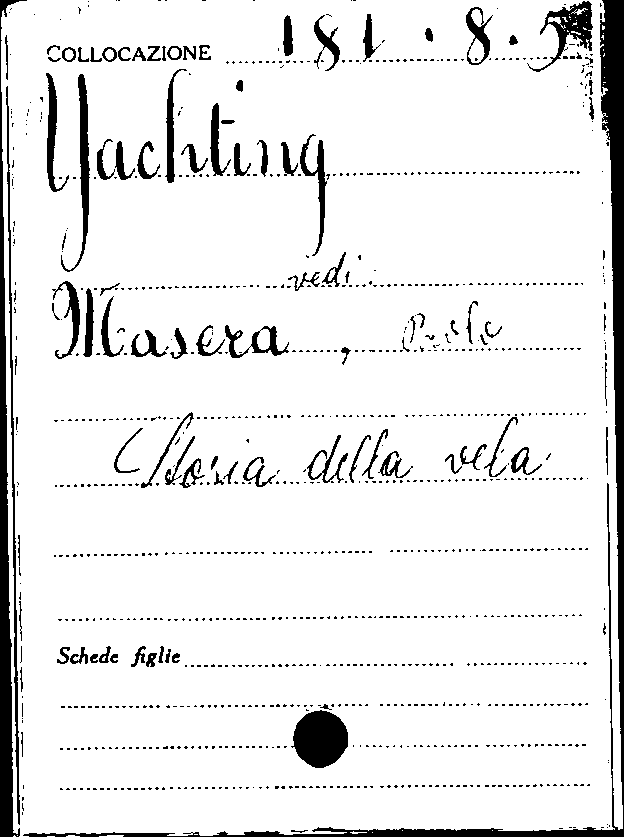 COLLOCAZIONE 181.8.5
Yachting
vedi:
Masera, Paolo
Storia della vela
Schede figlie